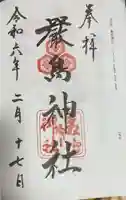 奉拝
厳島神社
令和六年
二月十七日